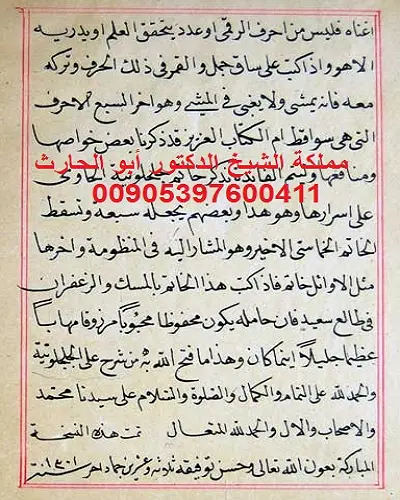 اغناه فليس من احرف الوقي او عدد يتحقق العلم او يدريه
الا هو واذا كتب على ساق جمل والقمر في ذلك الحرف وتركه
معه فانه يمشى ولا يغبى في المشي وهو اخر السبع الاحرف
التى هى سواقط ام الكتاب العزيز قد ذكرنا بعض خواصها
مملكة الشيخ الدكتور أبو الحارث
ومنافعها ولنتم الفائدة بذكر خاتم الجلجلوتية الحاوي
00905397600411
على اسرارها وهو هذا وبعضهم يجعله سبعه وتسقط
الخاتم الخماسى الاخير وهو المشار اليه فى المنظومة واخرها
مثل الاوائل خاتم فاذا كتب هذا الخاتم بالمسك والزعفران
فى طالع سعيد فان حامله يكون محفوظا محبوبا مرزوقا مهابا
عظيما جليلا اينما كان وهذا ما فتح الله به من شرح على الجلجلوتية
والحمد لله على التمام والكمال والصلوة والسلام على سيدنا محمد
والاصحاب والال والحمد لله المتعال تمت هذه النسخة
المباركة بعون الله تعالى وحسن توفيقه ثلاثة وعشرين جماد اخر سنة ١٣٠١